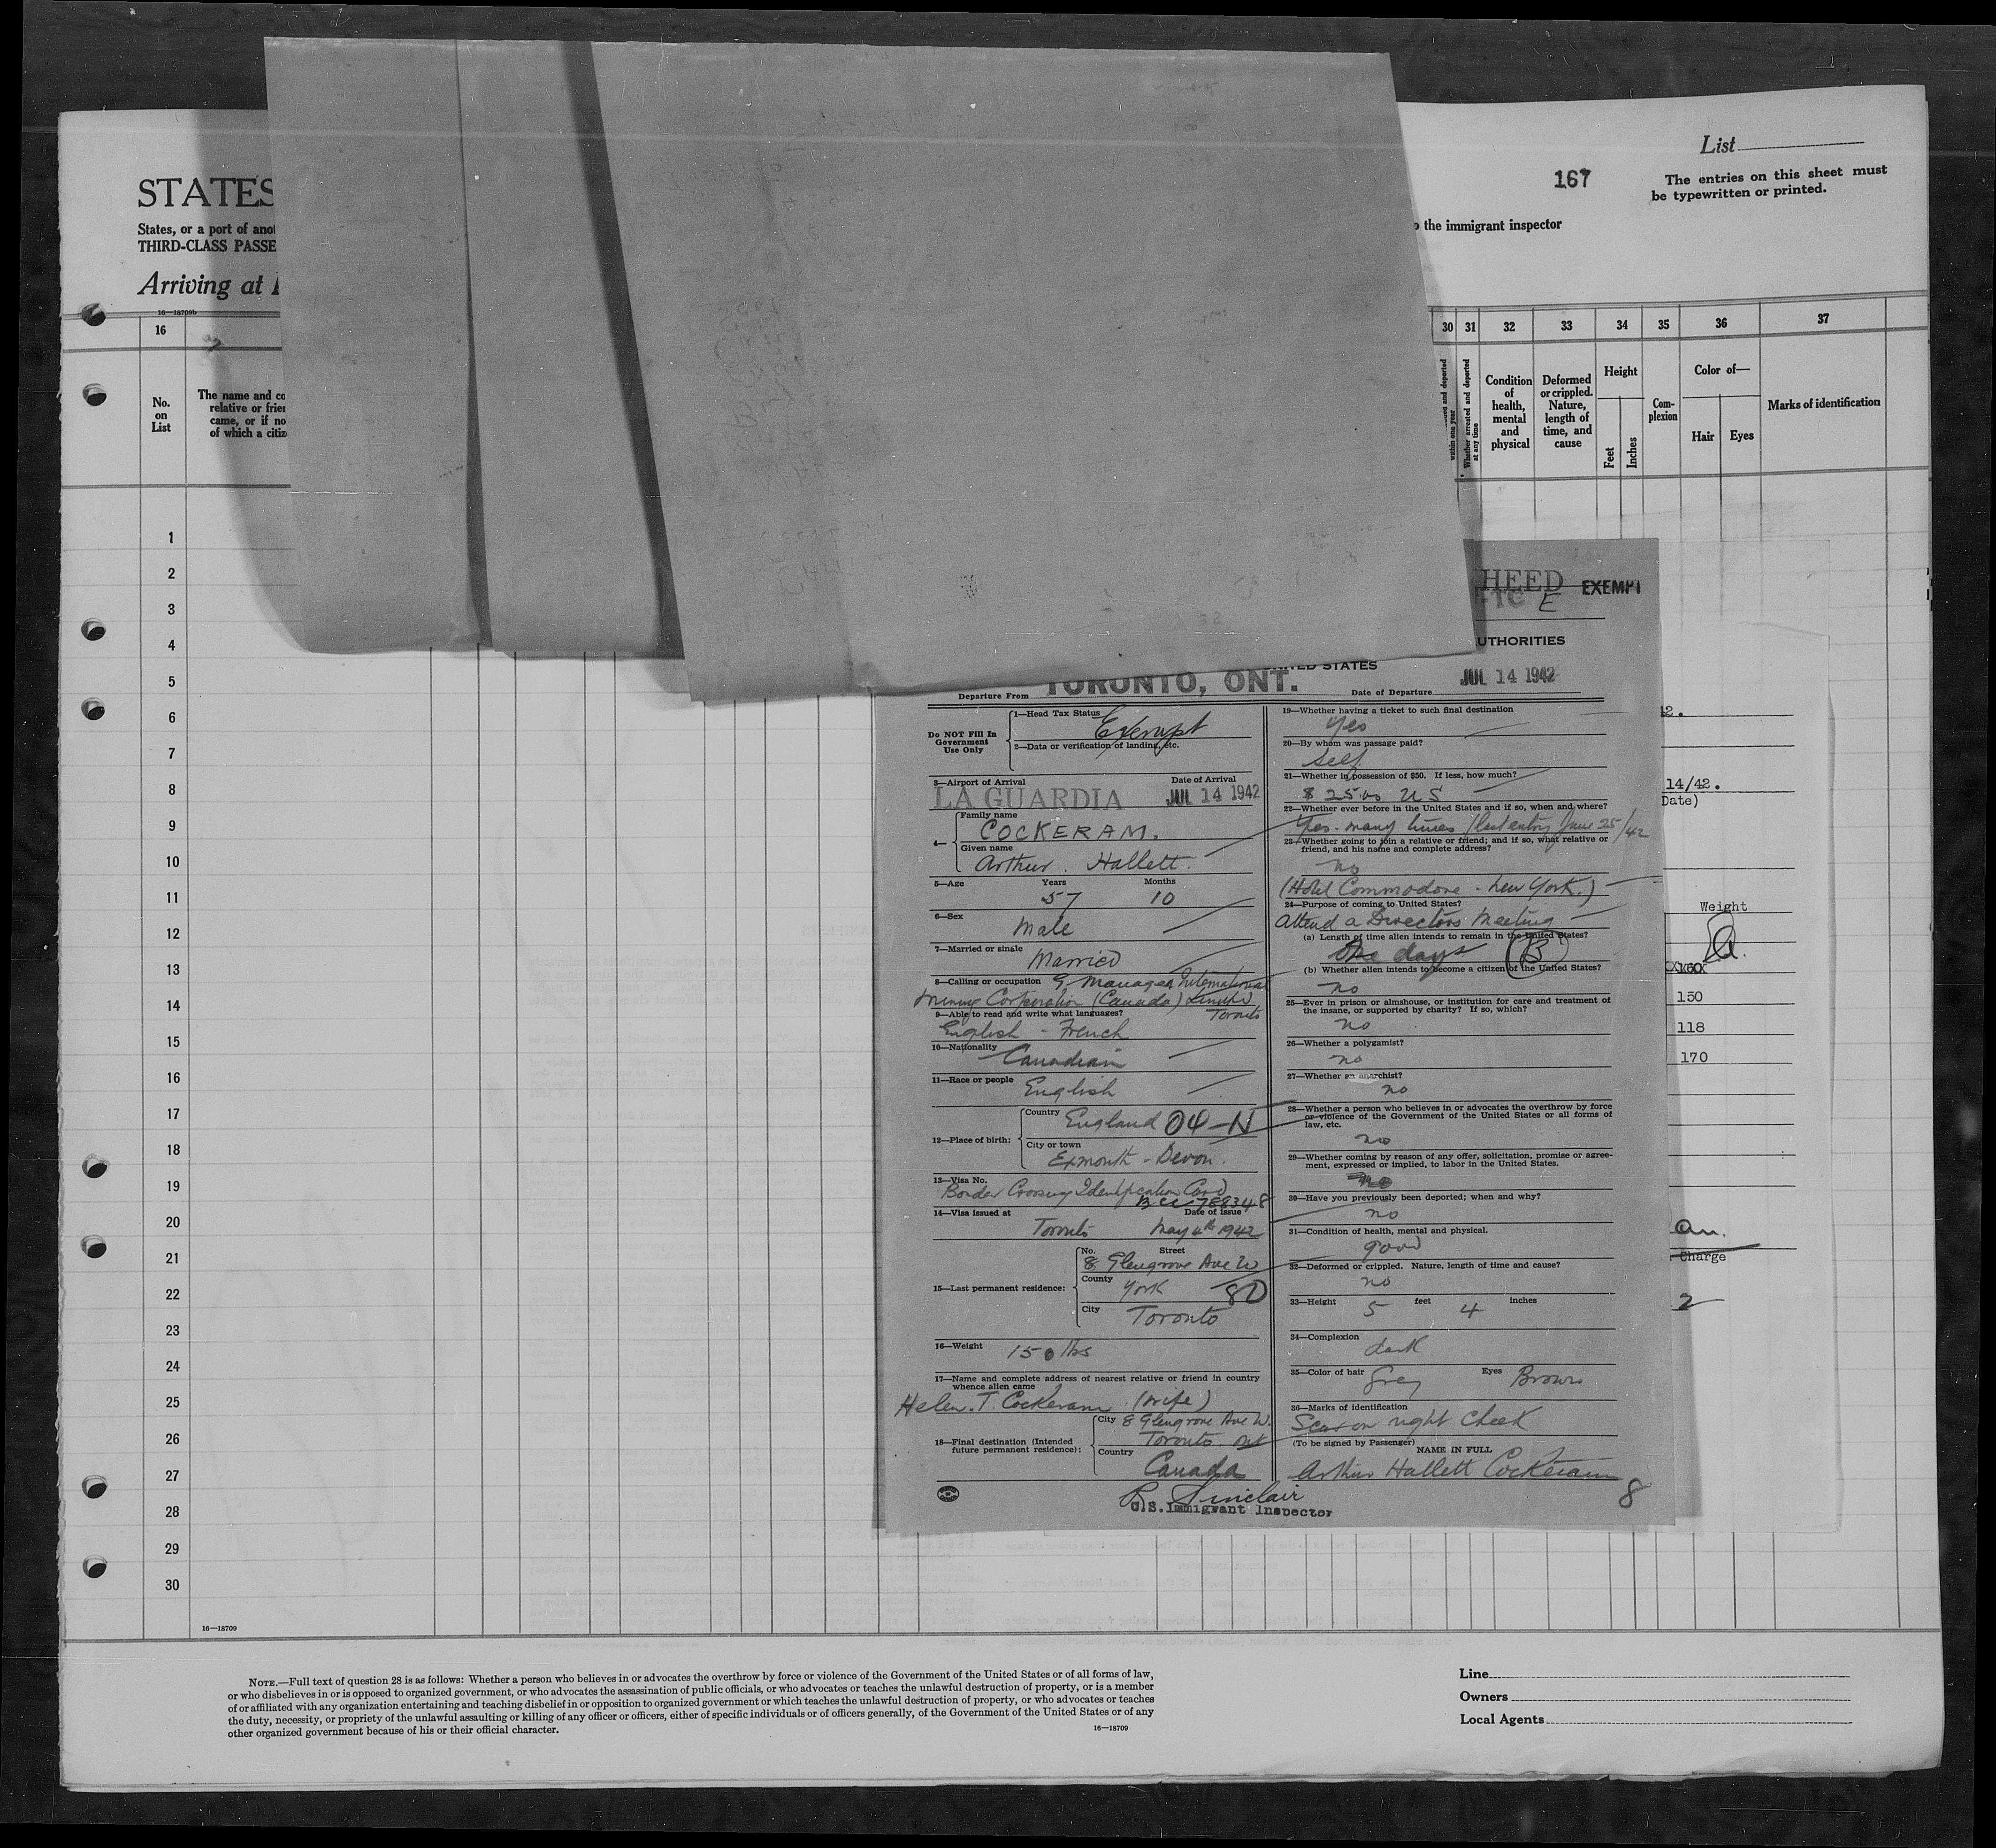 List
167
The entries on this sheet must
be typewritten or printed.
STATES
States, or a port of
THIRD-CLASS PASSE
the immigrant inspector
Arriving at
16—18709b
16
30 31 32 33 34 35 36 37
No.
on
List
The name and
relative or
came, or if no
of which a
and deported
within one year
Whether arrested and deported
at any time
Condition
of
health,
mental
and
physical
Deformed
or crippled.
Nature,
length of
time, and
cause
Height
Feet
Inches
Com-
plexion
Color of—
Hair
Eyes
Marks of identification
1
2
3
4
5
6
7
8
9
10
11
12
13
14
15
16
17
18
19
20
21
22
23
24
25
26
27
28
29
30
16—18709
HEED EXEMPT
E
UTHORITIES
STATES
Departure From TORONTO, ONT.
Date of Departure JUL 14 1942
Do NOT Fill In
Government
Use Only
1—Head Tax Status Exempt
2—Data or verification of landing, etc.
3—Airport of Arrival
Date of Arrival
LA GUARDIA JUL 14 1942
4— Family name
COCKERAM.
Given name
Arthur. Hallett.
5—Age Years Months
57 10
6—Sex
Male
7—Married or single
Married
8—Calling or occupation G. Manager International
Mining Corporation (Canada) Limited
Toronto
9—Able to read and write what languages?
English - French
10—Nationality
Canadian
11—Race or people
English
12—Place of birth:
Country England 04-N
City or town
Exmouth - Devon.
13—Visa No.
Border Crossing Identification Card
788348
14—Visa issued at Date of Issue
Toronto May 4th 1942
15—Last permanent residence:
No. Street
8 Glengrove Ave W
County
York 8D
City
Toronto
16—Weight
150 lbs
17—Name and complete address of nearest relative or friend in country
whence alien came
Helen. T. Cockeram (wife)
18—Final destination (Intended
future permanent residence):
City 8 Glengrove Ave W.
Toronto Ont
Country
Canada
19—Whether having a ticket to such final destination
Yes
20—By whom was passage paid?
Self
21—Whether in possession of $50. If less, how much?
$ 25.00 US
22—Whether ever before in the United States and if so, when and where?
Yes - many times / last entry June 25/42
23—Whether going to join a relative or friend; and if so, what relative or
friend, and his name and complete address?
No
(Hotel Commodore - New York.)
24—Purpose of coming to United States?
Attend a Directors Meeting
(a) Length of time alien intends to remain in the United States?
One days B
(b) Whether alien intends to become a citizen of the United States?
no
25—Ever in prison or almshouse, or institution for care and treatment of
the insane, or supported by charity? If so, which?
no
26—Whether a polygamist?
no
27—Whether an anarchist?
no
28—Whether a person who believes in or advocates the overthrow by force
or violence of the Government of the United States or all forms of
law, etc.
no
29—Whether coming by reason of any offer, solicitation, promise or agree-
ment, expressed or implied, to labor in the United States.
no
30—Have you previously been deported; when and why?
no
31—Condition of health, mental and physical.
good
32—Deformed or crippled. Nature, length of time and cause?
no
33—Height 5 feet 4 inches
34—Complexion
dark
35—Color of hair Grey Eyes Brown
36—Marks of identification
Scar on right cheek
(To be signed by Passenger)
NAME IN FULL
Arthur Hallett Cockeram
8
R Sinclair
U.S. Immigrant Inspector
14/42.
Date)
Weight
160
150
118
170
Charge
2
NOTE.—Full text of question 28 is as follows: Whether a person who believes in or advocates the overthrow by force or violence of the Government of the United States or of all forms of law,
or who disbelieves in or is opposed to organized government, or who advocates the assassination of public officials, or who advocates or teaches the unlawful destruction of property, or is a member
of or affiliated with any organization entertaining and teaching disbelief in or opposition to organized government or which teaches the unlawful destruction of property, or who advocates or teaches
the duty, necessity, or propriety of the unlawful assaulting or killing of any officer or officers, either of specific individuals or of officers generally, of the Government of the United States or of any
other organized government because of his or their official character.
16—18709
Line
Owners
Local Agents